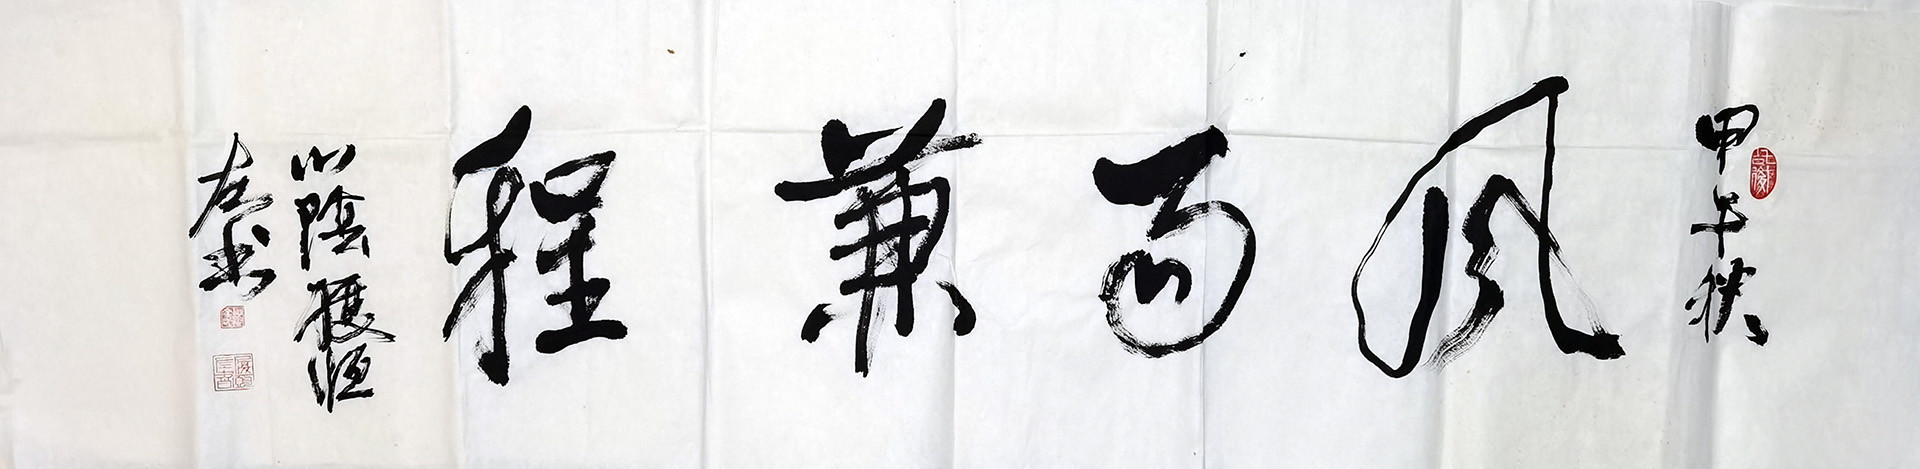 甲午秋
風雨兼程
山陰
左書